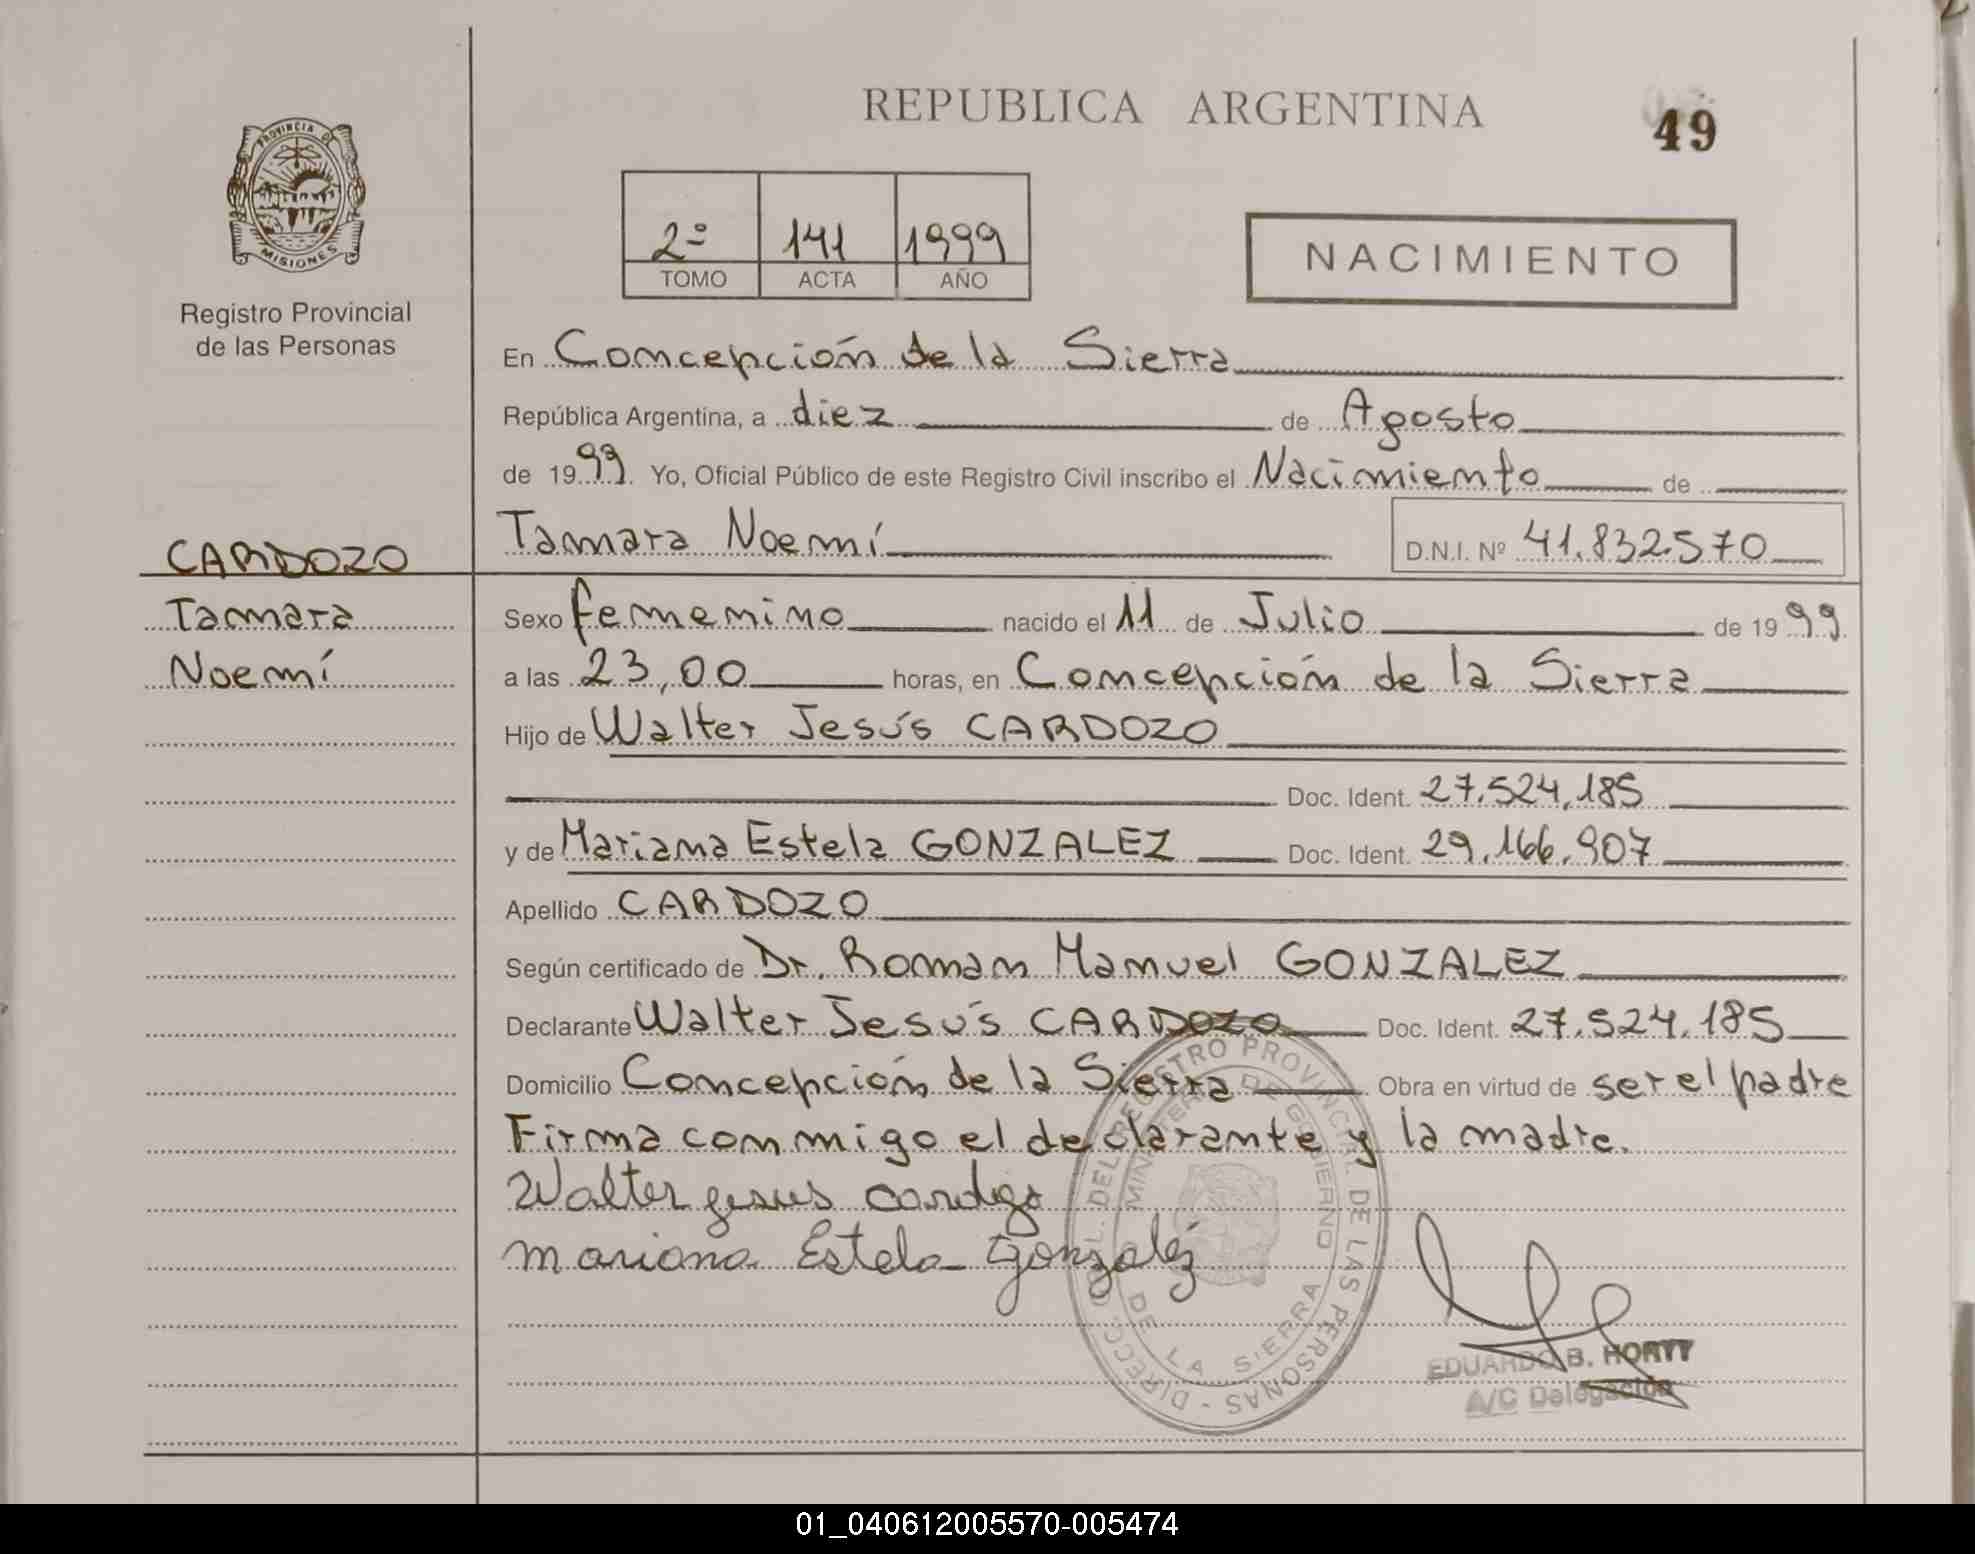 REPUBLICA ARGENTINA
49
PROVINCIA DE
MISIONES
Registro Provincial
de las Personas
2º 141 1999
TOMO ACTA AÑO
NACIMIENTO
En Concepción de la Sierra
República Argentina, a diez de Agosto
de 1999. Yo, Oficial Público de este Registro Civil inscribo el Nacimiento de
CARDOZO
Tamara
Noemí
Tamara Noemí D.N.I. Nº 41.832.570
Sexo femenino nacido el 11 de Julio de 1999
a las 23,00 horas, en Concepción de la Sierra
Hijo de Walter Jesús CARDOZO
Doc. Ident. 27.524.185
y de Mariana Estela GONZALEZ Doc. Ident. 29.166.907
Apellido CARDOZO
Según certificado de Dr. Roman Manuel GONZALEZ
Declarante Walter Jesús CARDOZO Doc. Ident. 27.524.185
Domicilio Concepción de la Sierra Obra en virtud de ser el padre
Firma conmigo el declarante y la madre.
Walter jesus cardozo
mariana Estela Gonzalez
DIRECC. GRAL. DEL REGISTRO PROVINCIAL DE LAS PERSONAS -
MINISTERIO DE GOBIERNO
DE LA SIERRA
EDUARDO B. HORYY
A/C Delegación
01_040612005570-005474